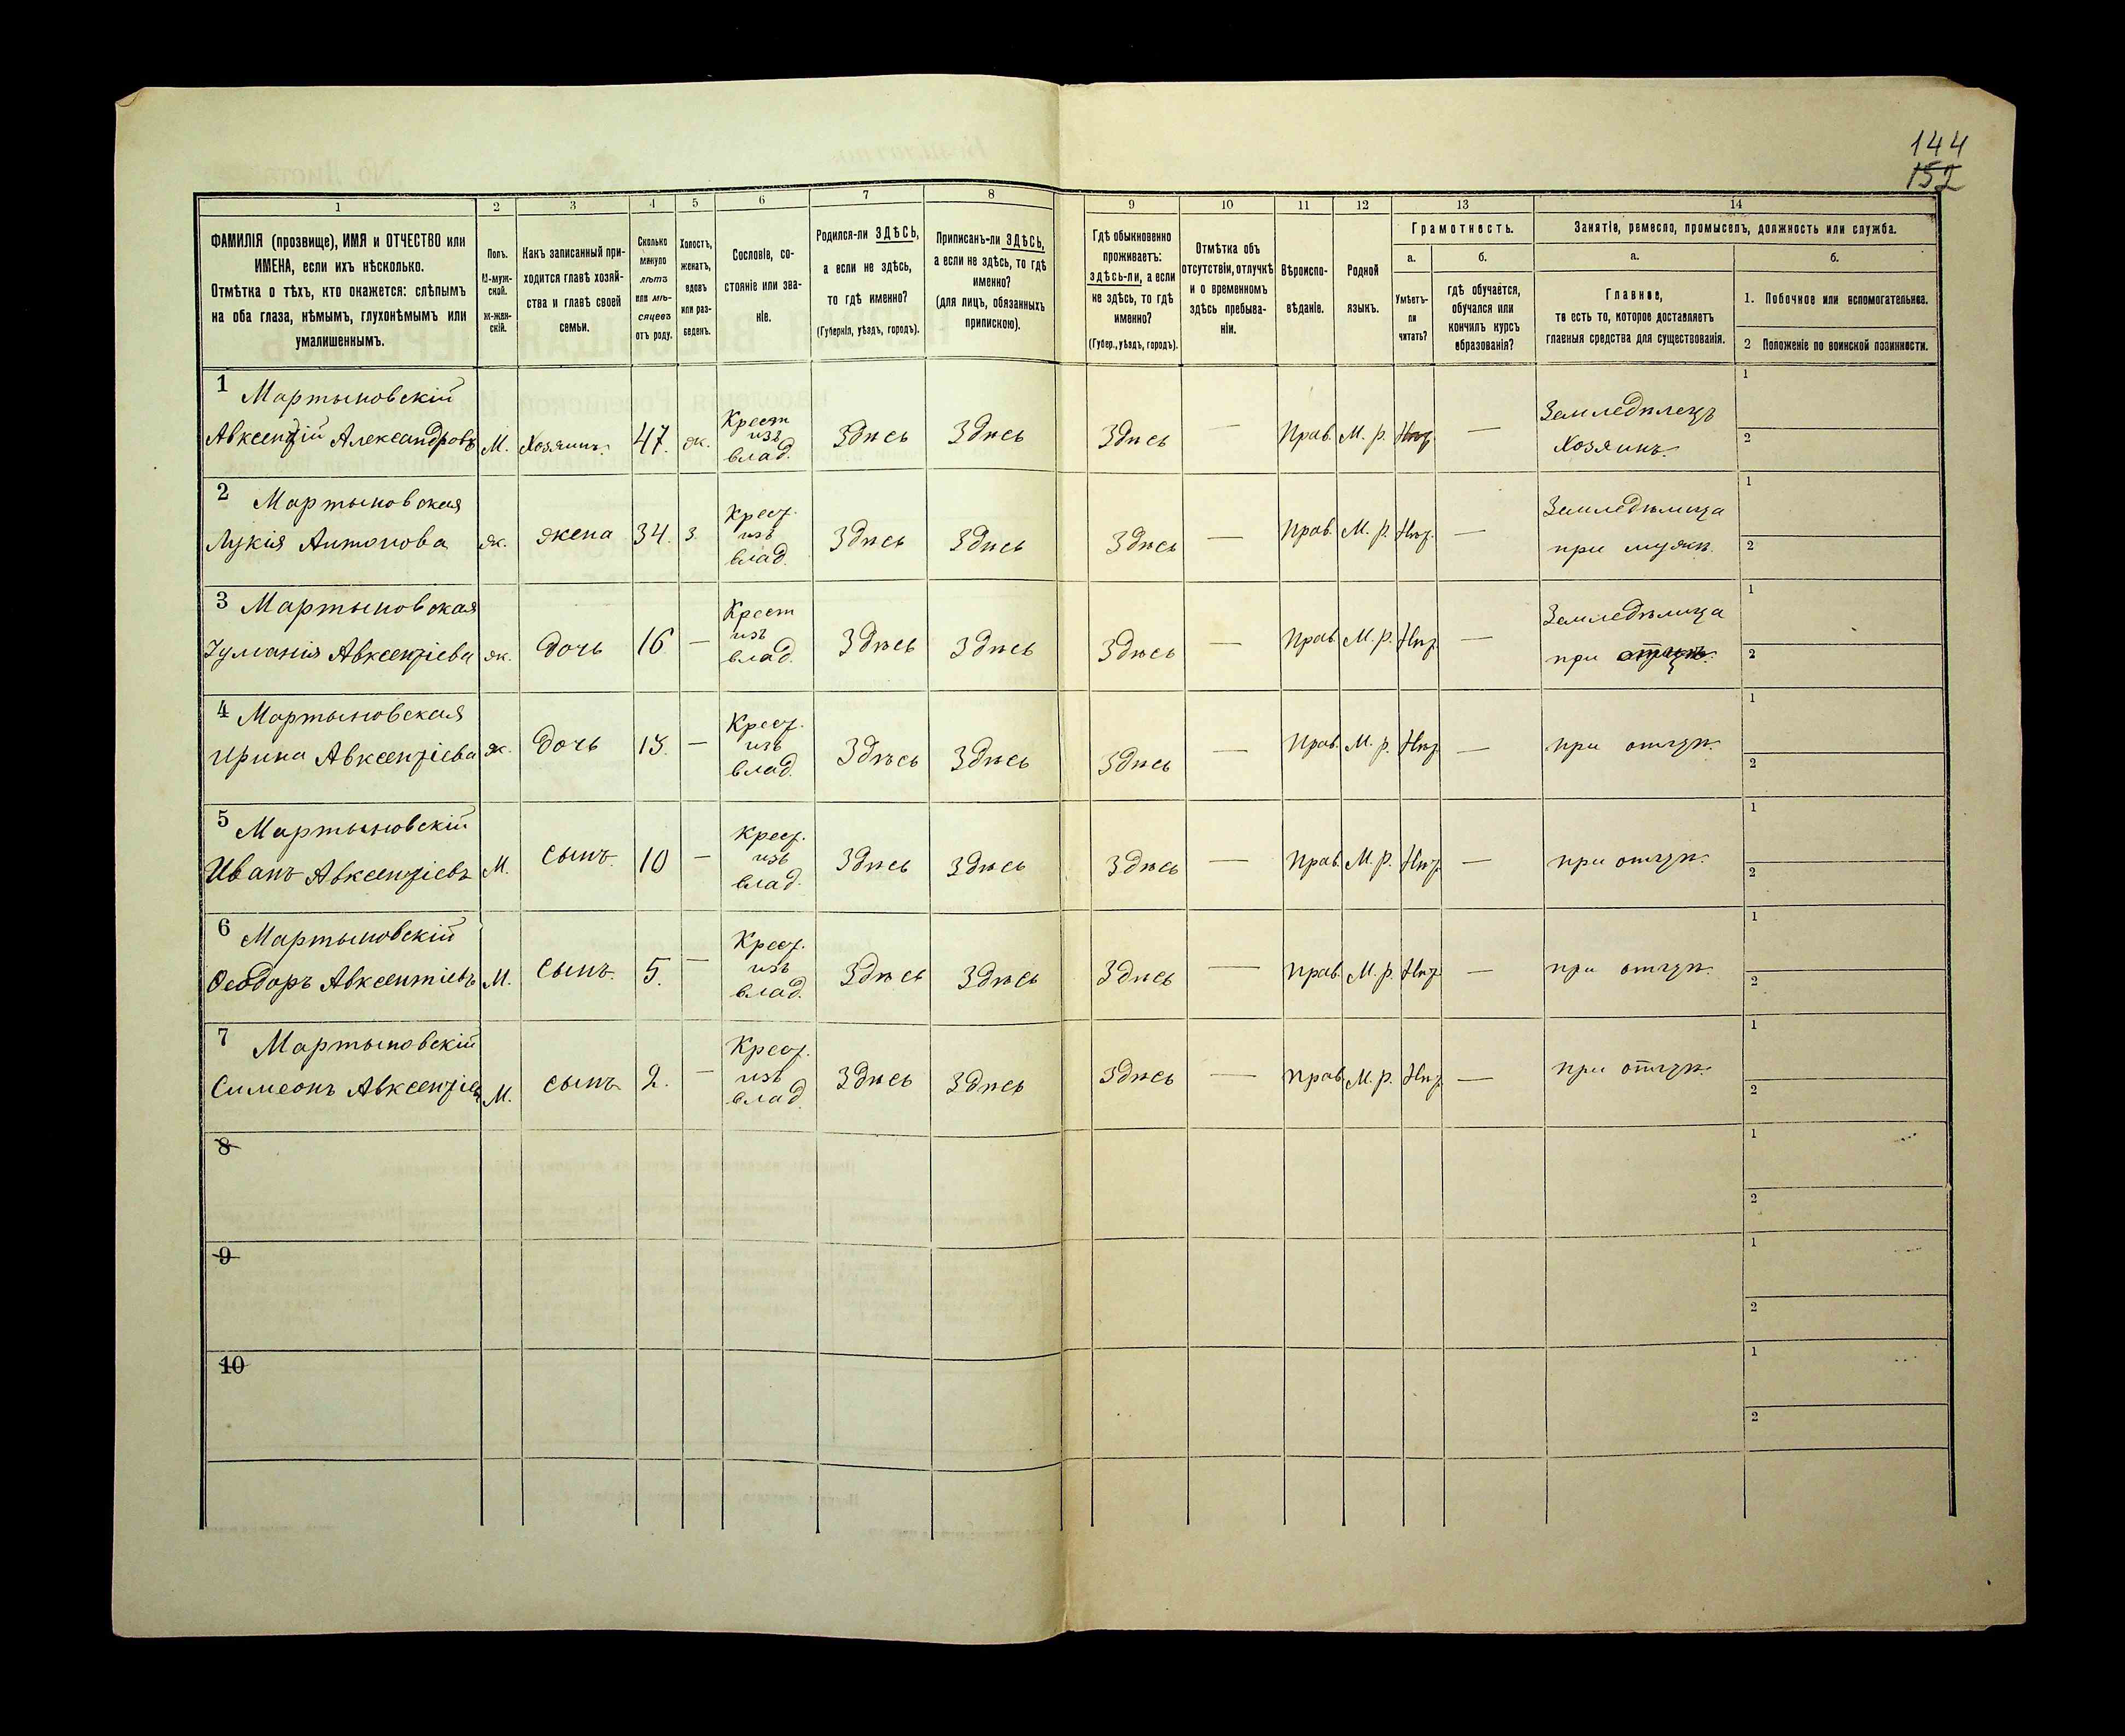 144
152
1
2
3
4
5
6
7
8
9
10
11
12
13
14
ФАМИЛІЯ (прозвище), ИМЯ и ОТЧЕСТВО или
ИМЕНА, если ихъ нѣсколько.
Отмѣтка о тѣхъ, кто окажется: слѣпымъ
на оба глаза, нѣмымъ, глухонѣмымъ или
умалишеннымъ.
Полъ.
М-муж-
ской.
Ж-жен-
скій.
Какъ записанный при-
ходится главѣ хозяй-
ства и главѣ своей
семьи.
Сколько
минуло
лѣтъ
или мѣ-
сяцевъ
отъ роду.
Холостъ,
женатъ,
вдовъ
или раз-
веденъ.
Сословіе, со-
стояніе или зва-
ніе.
Родился-ли ЗДѢСЬ,
а если не здѣсь,
то гдѣ именно?
(Губернія, уѣздъ, городъ).
Приписанъ-ли ЗДѢСЬ,
а если не здѣсь, то гдѣ
именно?
(для лицъ, обязанныхъ
припискою).
Гдѣ обыкновенно
проживаетъ:
здѣсь-ли, а если
не здѣсь, то гдѣ
именно?
(Губер., уѣздъ, городъ).
Отмѣтка объ
отсутствіи, отлучкѣ
и о временномъ
здѣсь пребыва-
ніи.
Вѣроиспо-
вѣданіе.
Родной
языкъ.
Грамотность.
а.
Умѣетъ-
ли
читать?
б.
гдѣ обучается,
обучался или
кончилъ курсъ
образованія?
Занятіе, ремесло, промыселъ, должность или служба.
а.
Главное,
то есть то, которое доставляетъ
главныя средства для существованія.
б.
1. Побочное или вспомогательное.
2 Положеніе по воинской повинности.
1 Мартыновскій
Авксентій Александровъ М. Хозяинъ. 47. ж. Крест изъ влад. Здѣсь Здѣсь Здѣсь — Прав. М. р. Нѣт — Земледѣлецъ Хозяинъ. 1 2
2 Мартыновская
Лукія Антонова ж. жена 34. з. Крест. изъ влад. Здѣсь Здѣсь Здѣсь — Прав. М. р. Нѣт. — Земледѣлица при мужѣ. 1 2
3 Мартыновская
Іуліанія Авксентіева ж. дочь 16 — Крест изъ влад. Здѣсь Здѣсь Здѣсь — Прав. М. р. Нѣт. — Земледѣлица при отцѣ. 1 2
4 Мартыновская
Ирина Авксентіева ж. дочь — Крест. изъ влад. Здѣсь Здѣсь Здѣсь — Прав. М. р. Нѣт — при отцѣ. 1 2
5 Мартыновскій
Иванъ Авксентіевъ М. сынъ. 10 — Крест. изъ влад. Здѣсь Здѣсь Здѣсь — Прав. М. р. Нѣт. — при отцѣ. 1 2
6 Мартыновскій
Ѳеодоръ Авксентіевъ М. сынъ. 5. — Крест. изъ влад. Здѣсь Здѣсь Здѣсь — Прав. М. р. Нѣт. — при отцѣ. 1 2
7 Мартыновскій
Симеонъ Авксентіев М. сынъ 2. — Крест. изъ влад. Здѣсь Здѣсь Здѣсь — Прав. М. р. Нѣт. — при отцѣ. 1 2
8 1 2
9 1 2
10 1 2